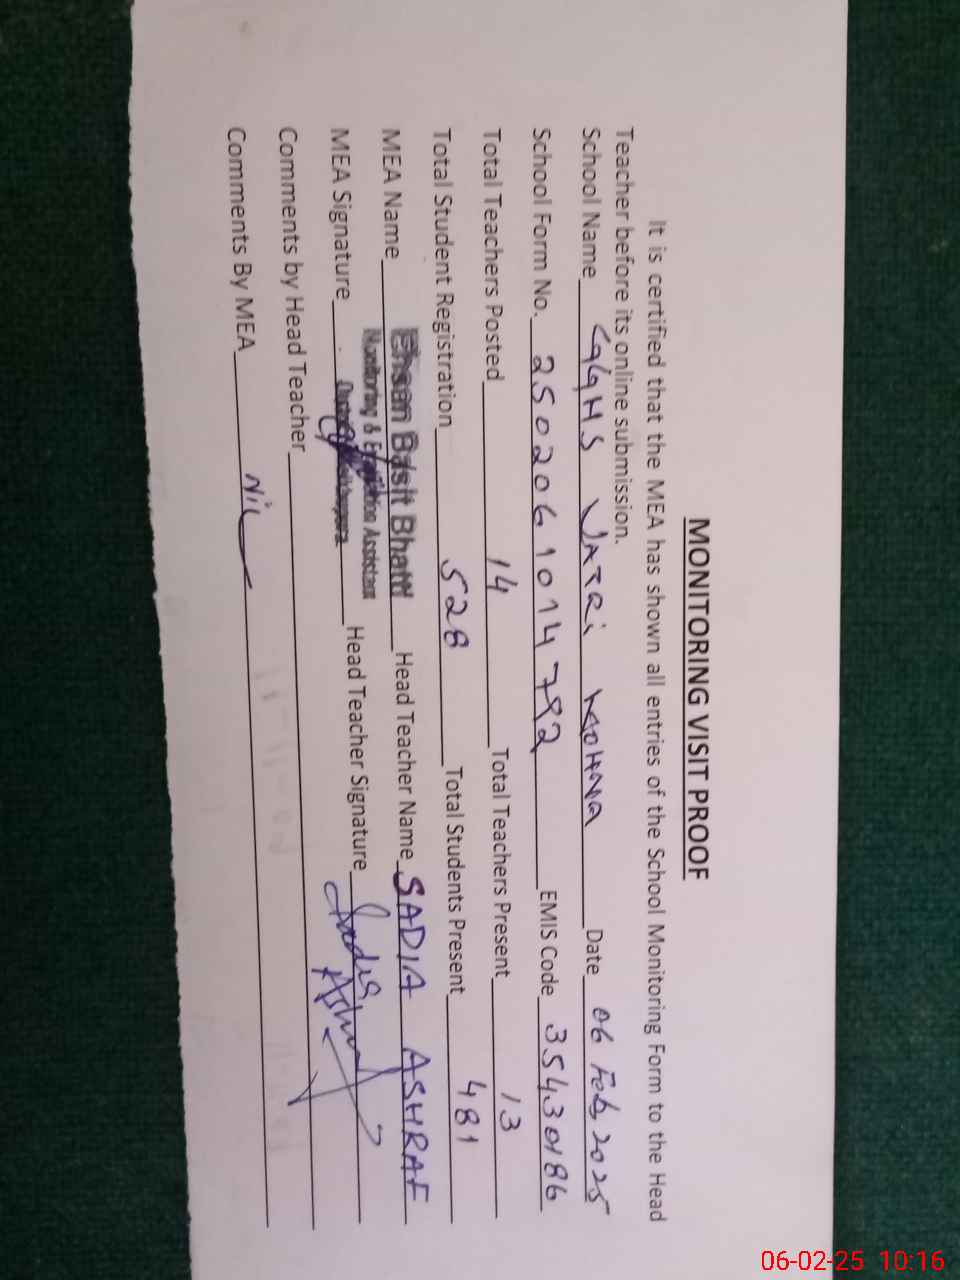 MONITORING VISIT PROOF
It is certified that the MEA has shown all entries of the School Monitoring Form to the Head
Teacher before its online submission.
School Name GGHS JATRi Date 06 Feb, 2025
School Form No. 2502061014792 EMIS Code 35430186
Total Teachers Posted 14 Total Teachers Present 13
Total Student Registration 528 Total Students Present 481
MEA Name Ehsan Basit Bhatti Head Teacher Name SADIA ASHRAF
Monitoring & Evaluation Assistant
MEA Signature Head Teacher Signature Sadia Ashraf
Comments by Head Teacher
Comments By MEA Nil
06-02-25 10:16